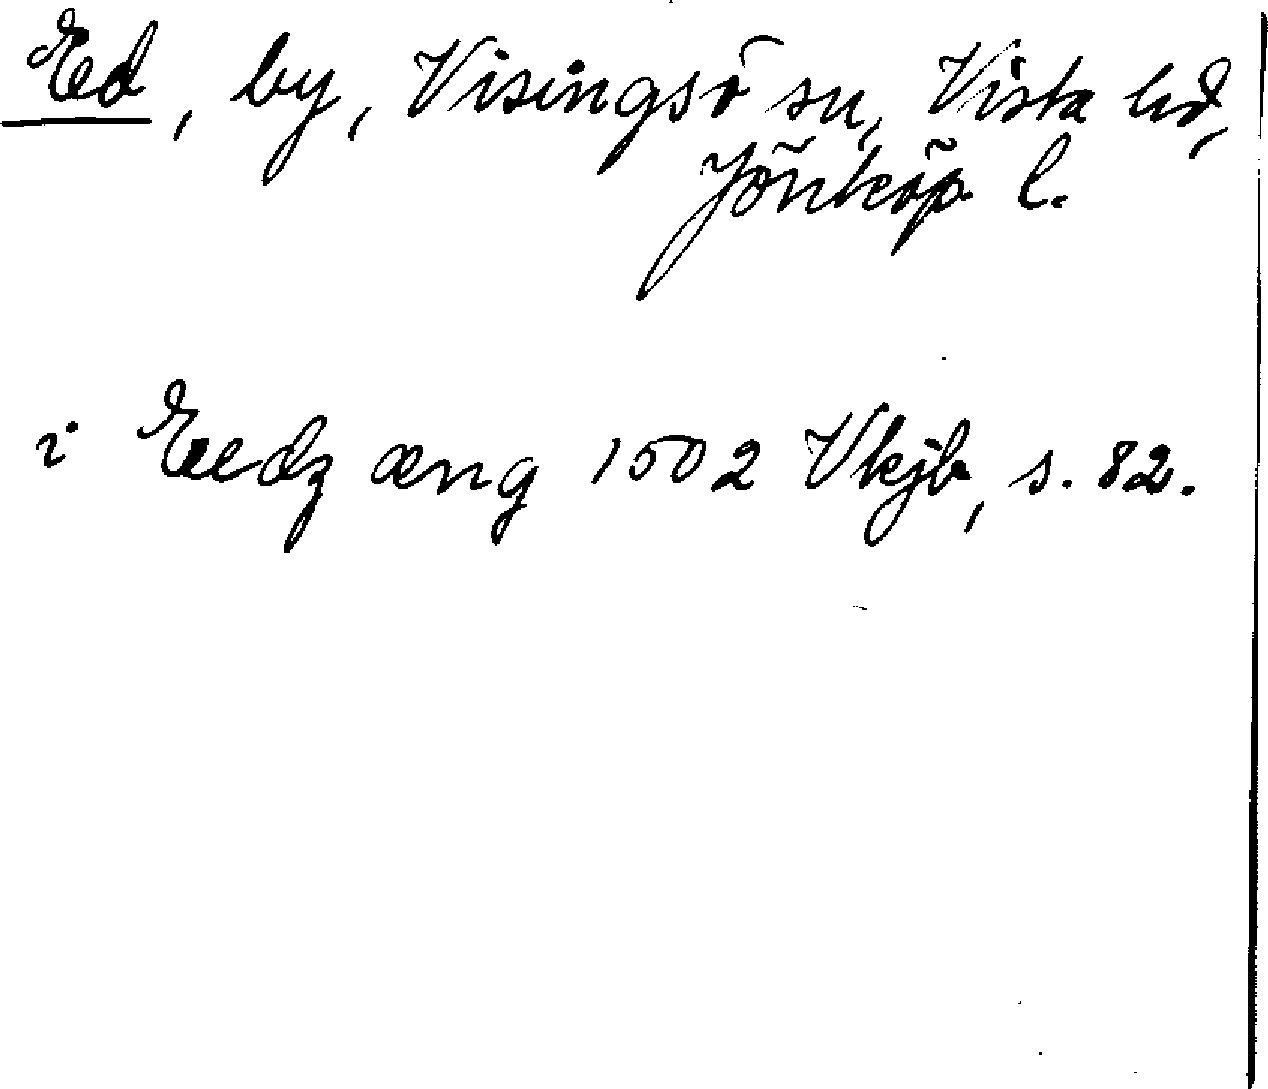 Ed, by, Visingsö sn, Vista hd,
Jönköp. l.
i Eedz æng 1502 Vkjb, s. 82.